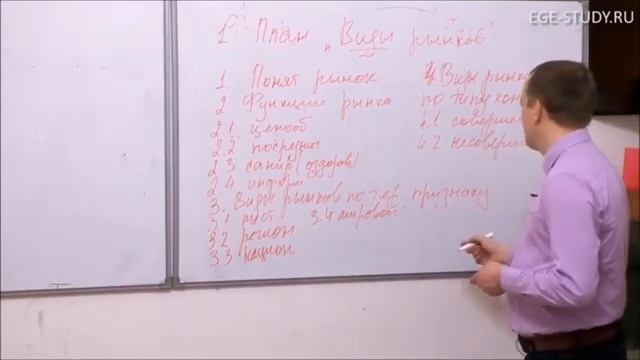 EGE-STUDY.RU
План "Виды рынков"
1. Понят рынок
2. Функции рынка
2.1 ценооб
2.2 посредни
2.3 санир (оздоров)
2.4 информ
3. Виды рынков по тер. признаку
3.1 мест.
3.2 регион.
3.3 национ.
3.4 мировой
4 Виды рынка
по типу кон
4.1 соверше
4.2 несоверш